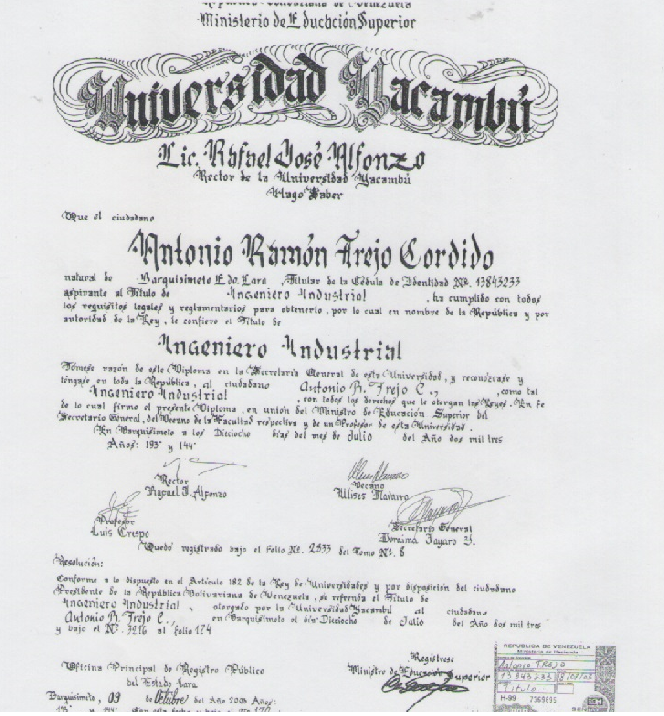 República Bolivariana de Venezuela
Ministerio de Educación Superior
Universidad Yacambú
Lic. Rafael José Alfonzo
Rector de la Universidad Yacambú
Hago Saber
Que el ciudadano
Antonio Ramón Trejo Cordido
natural de Barquisimeto Edo. Lara, Titular de la Cédula de Identidad Nº. 13843233
aspirante al Título de Ingeniero Industrial, ha cumplido con todos
los requisitos legales y reglamentarios para obtenerlo, por lo cual en nombre de la República y por
autoridad de la Ley, le confiere el Título de
Ingeniero Industrial
Tómese razón de este Diploma en la Secretaría General de esta Universidad, y reconózcase y
téngase en toda la República, al ciudadano Antonio R. Trejo C., como tal
Ingeniero Industrial, con todos los derechos que le otorgan las Leyes. En fe
de lo cual firmo el presente Diploma, en unión del Ministro de Educación Superior del
Secretario General, del Decano de la Facultad respectiva y de un Profesor de esta Universidad.
En Barquisimeto a los Dieciocho días del mes de Julio del Año dos mil tres
Años: 193º y 144º
Rector
Rafael J. Alfonzo
Decano
Ulises
Profesor
Luis Crespo
Secretario General
Quedó registrado bajo el folio Nº. 2533 del Tomo Nº. 6
Resolución:
Conforme a lo dispuesto en el Artículo 182 de la Ley de Universidades y por disposición del ciudadano
Presidente de la República Bolivariana de Venezuela, se refrenda el Título de
Ingeniero Industrial, otorgado por la Universidad Yacambú al ciudadano
Antonio R. Trejo C., en Barquisimeto el día Dieciocho de Julio del Año dos mil tres
y bajo el Nº. 3216 al folio 174
Regístrese:
Ministro de Educación Superior
Oficina Principal de Registro Público
del Estado Lara
Barquisimeto, 03 de Octubre del Año 2003 Años:
REPUBLICA DE VENEZUELA
Antonio Trejo
13 843 233
Título
H-99